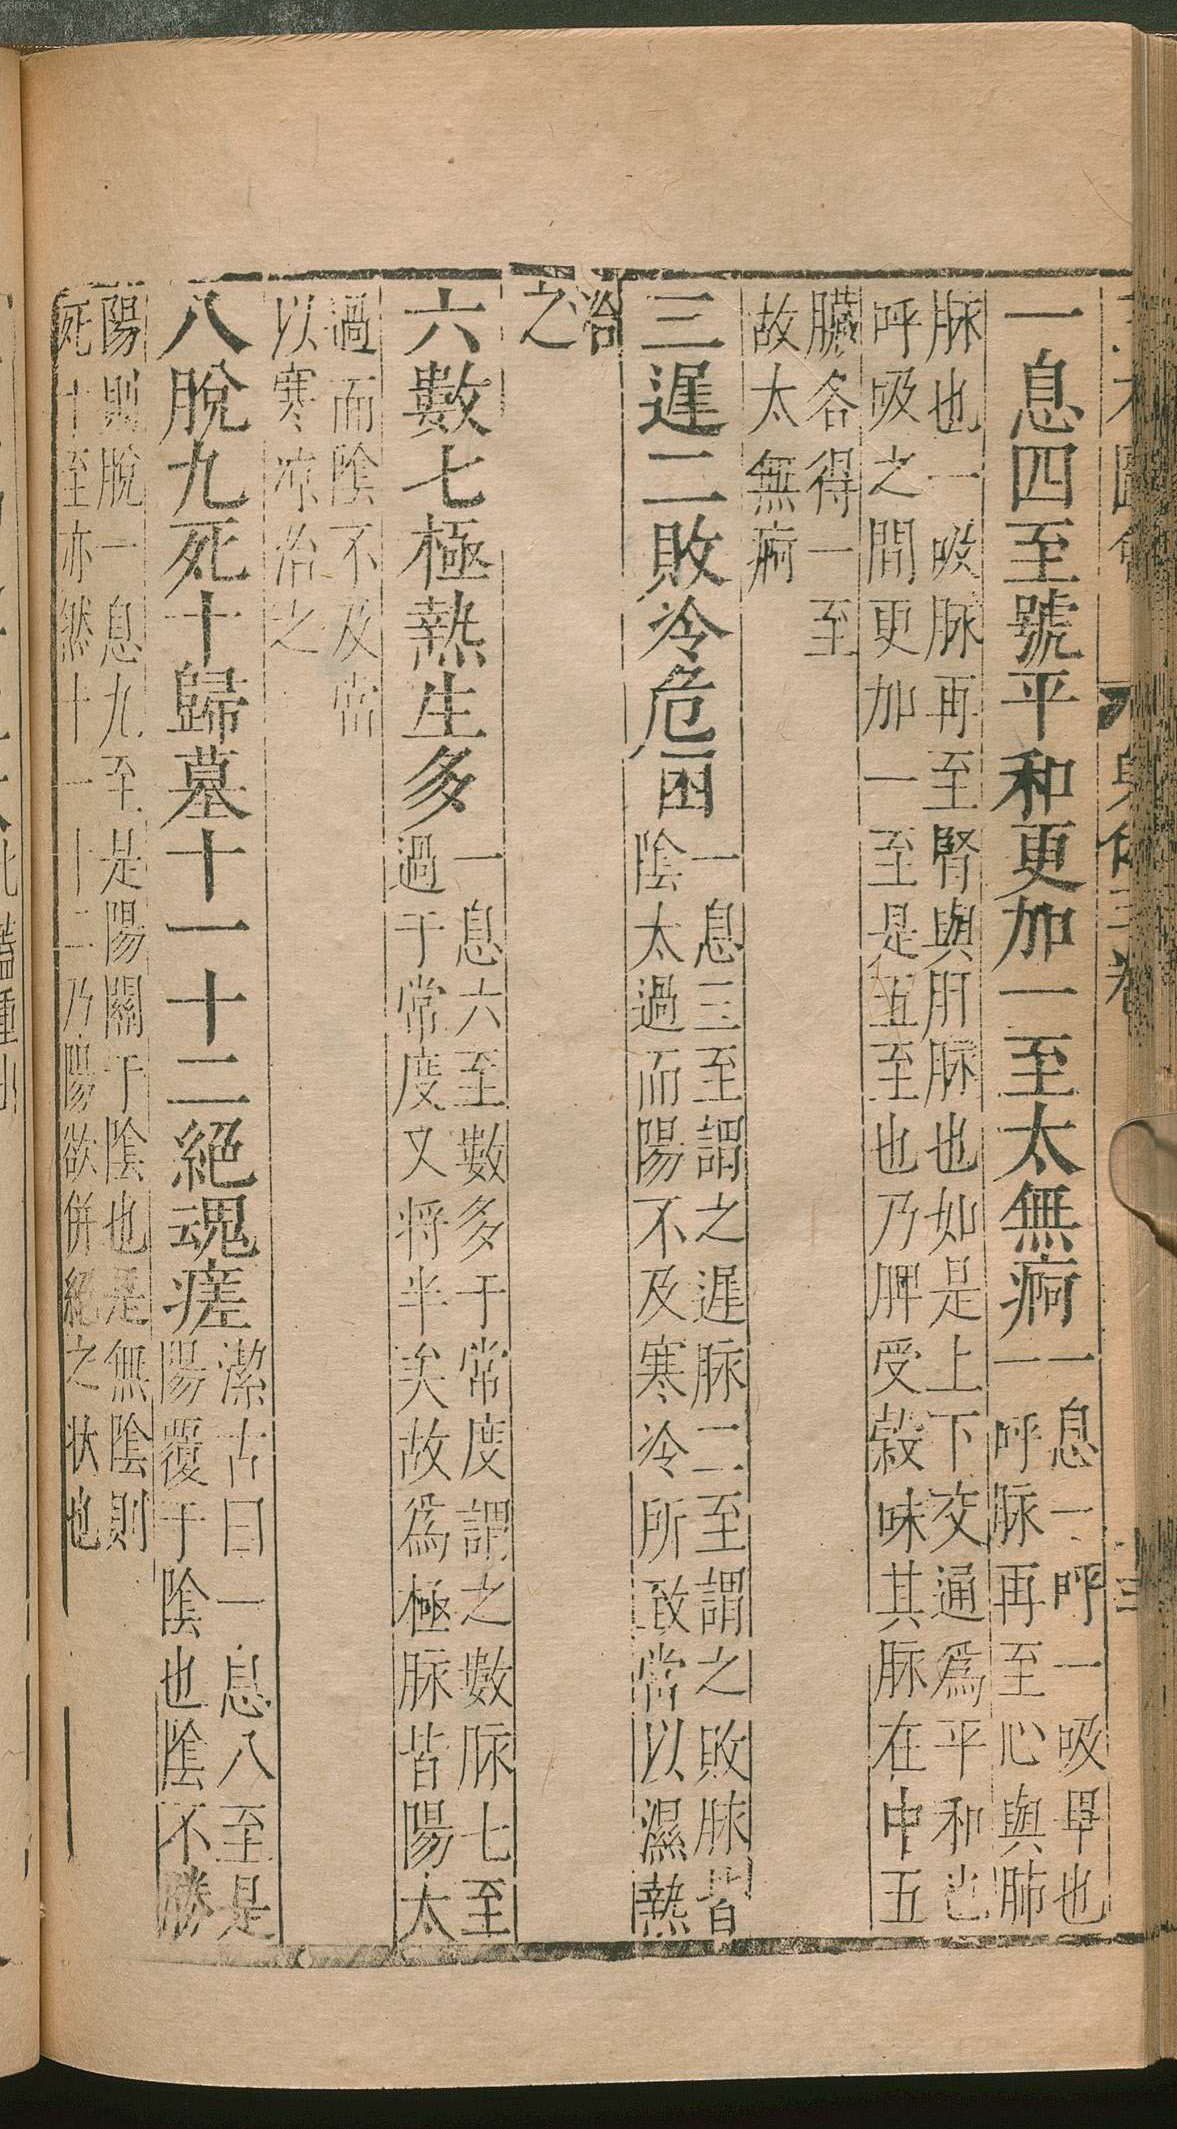 一息四至號平和更加一至太無病
一息一呼一吸畢也
一呼脉再至心與肺
脉也一吸脉再至腎與肝脉也如是上下交通爲平和也
呼吸之間更加一至是五至也乃脾受穀味其脉在中五
臟各得一至
故太無病
三遲二敗冷危困
一息三至謂之遲脉二至謂之敗脉皆
陰太過而陽不及寒冷所致當以濕熱
治
之
六數七極熱生多
一息六至數多于常度謂之數脉七至
過于常度又将半矣故爲極脉皆陽太
過而陰不及當
以寒凉治之
八脫九死十歸墓十一十二絕魂瘥
潔古曰一息八至是
陽覆于陰也陰不勝
陽則脫一息九至是陽關于陰也是無陰則
死十至亦然十一十二乃陽欲併絕之状也